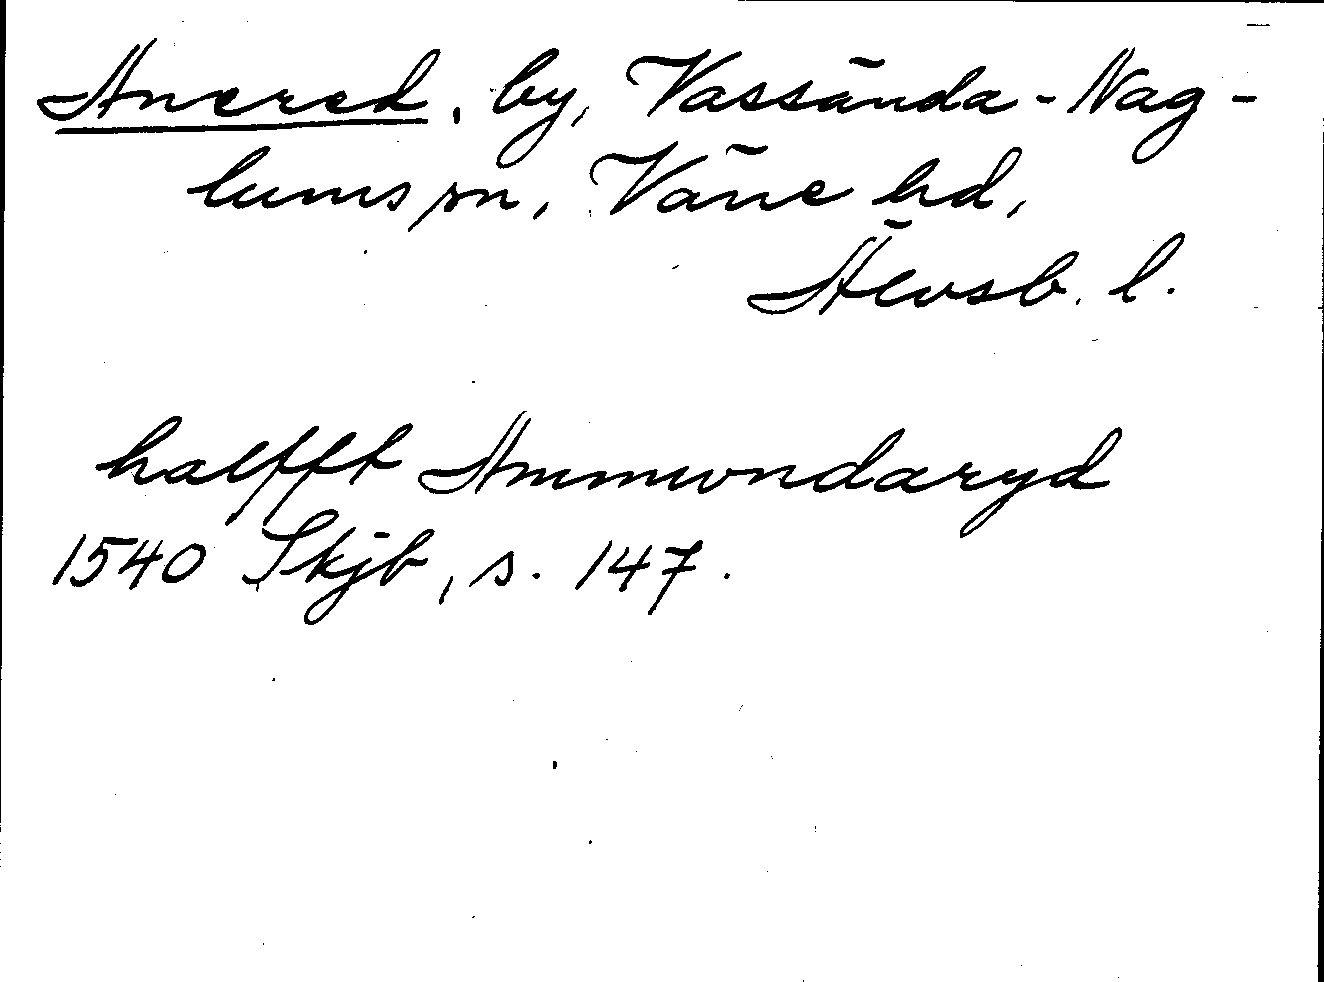 Anered, by, Vassända-Nag-
lums sn, Väne hd,
Älvsb. l.
halfft Ammwndaryd
1540 Skjb, s. 147.